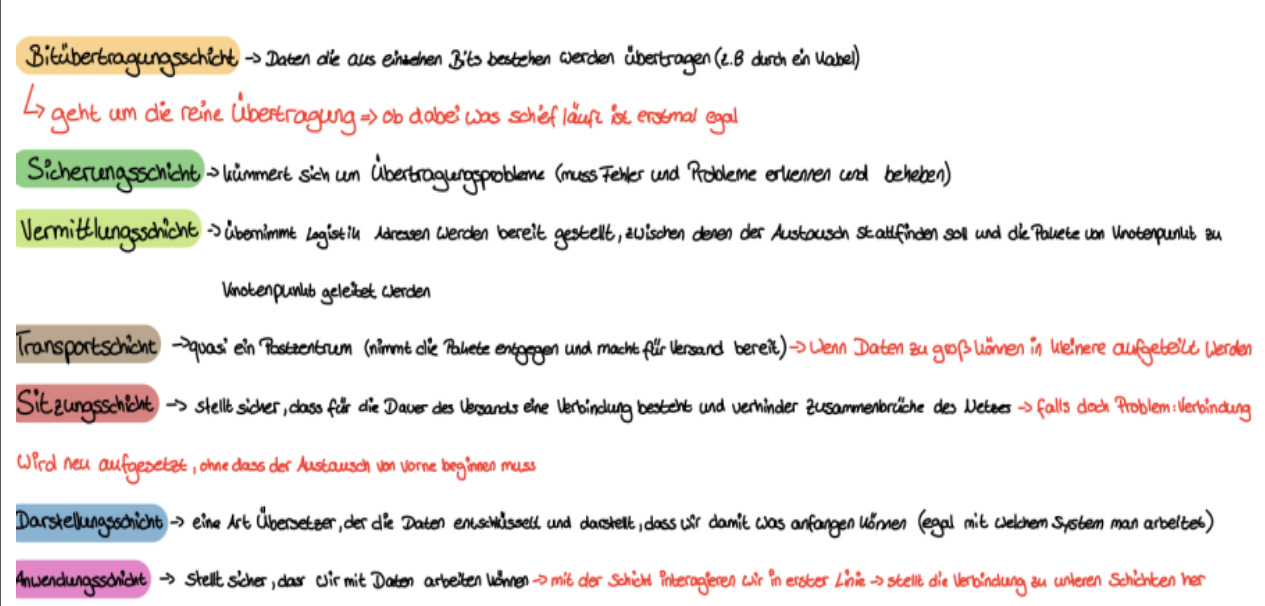 Bitübertragungsschicht -> Daten die aus einzelnen Bits bestehen werden übertragen (z.B durch ein Kabel)
↳ geht um die reine Übertragung => ob dabei was schief läuft ist erstmal egal
Sicherungsschicht -> kümmert sich um Übertragungsprobleme (muss Fehler und Probleme erkennen und beheben)
Vermittlungsschicht -> übernimmt Logistik Adressen werden bereit gestellt, zwischen denen der Austausch stattfinden soll und die Pakete von Knotenpunkt zu
Knotenpunkt geleitet werden
Transportschicht -> quasi ein Postzentrum (nimmt die Pakete entgegen und macht für Versand bereit) -> Wenn Daten zu groß können in kleinere aufgeteilt werden
Sitzungsschicht -> stellt sicher, dass für die Dauer des Versands eine Verbindung besteht und verhinder Zusammenbrüche des Netzes -> falls doch Problem: Verbindung
wird neu aufgesetzt, ohne dass der Austausch von vorne beginnen muss
Darstellungsschicht -> eine Art Übersetzer, der die Daten entschlüsselt und darstellt, dass wir damit was anfangen können (egal mit welchem System man arbeitet)
Anwendungsschicht -> stellt sicher, das wir mit Daten arbeiten können -> mit der Schicht interagieren wir in erster Linie -> stellt die Verbindung zu unteren Schichten her